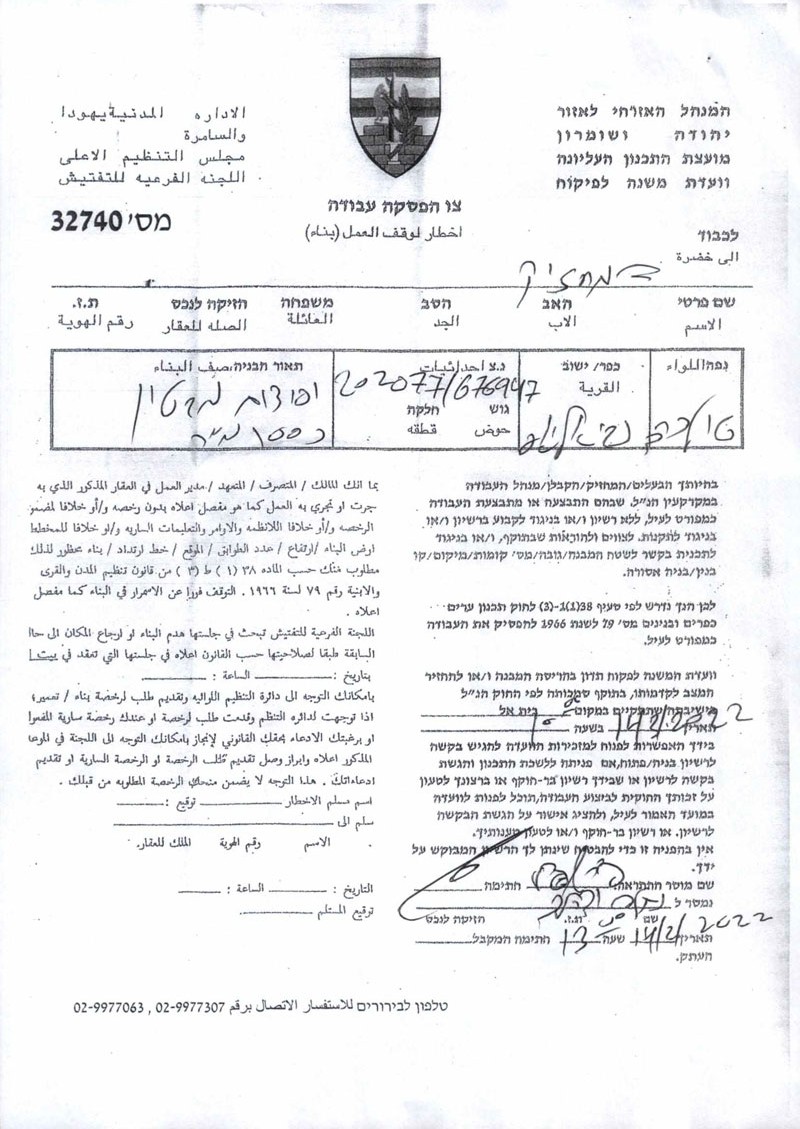 המנהל האזרחי לאזור
יהודה ושומרון
מועצת התכנון העליונה
וועדת משנה לפיקוח
الاداره المدنية يهودا
والسامرة
مجلس التنظيم الاعلى
اللجنه الفرعيه للتفتيش
צו הפסקת עבודה
اخطار لوقف العمل (بناء)
מס' 32740
לכבוד
الى خضرة
המחזיק
שם פרטי האב הסב משפחה הזיקה לנכס ת.ז.
الاسم الاب الجد العائلة الصله للعقار رقم الهوية
נפה اللواء כפר/ ישוב נ.צ احداثيات תאור הבניה صيف البناء
القرية 202077/676947
גוש חלקה
حوض قطقه
טובס
בחיותך הבעלים/המחזיק/הקבלן/מנהל העבודה
במקרקעין הנ"ל, שבהם התבצעה או מתבצעת העבודה
כמפורט לעיל, ללא רשיון ו/או בניגוד לקבוע ברשיון ו/או
בניגוד לתקנות, לצווים ולהוראות שבתוקף, ו/או בניגוד
לתכנית בקשר לשטח המבנה/גובה/מס' קומות/מיקום/קו
בנין/בניה אסורה.
לכן הנך נדרש לפי סעיף 38(1)-(3) לחוק תכנון ערים
כפרים ובנינים מס' 79 לשנת 1966 להפסיק את העבודה
כמפורט לעיל.
וועדת המשנה לפקוח תדון בהריסת המבנה ו/או להחזיר
המצב לקדמותו, בתוקף סמכותה לפי החוק הנ"ל
בישיבתה שתקיים במקום בית אל
תאריך 14/2/2022 בשעה
בידך האפשרות לפנות למזכירות הוועדה להגיש בקשה
לרשיון בניה/פתוח, אם פנית ללשכת התכנון והגשת
בקשה לרשיון או שבידך רשיון בר-תוקף או ברצונך לטעון
על זכותך החוקית לביצוע העבודה, תוכל לפנות לוועדה
במועד האמור לעיל, ולהציג אישור על הגשת הבקשה
לרשיון, או רשיון בר-תוקף ו/או לטעון טענותיך.
אין בהפניה זו כדי להבטיח שינתן לך הרשיון המבוקש על
ידך.
שם מוסר ההתראה חתימה
נמסר ל
שם ת.ז. הזיקה לנכס
תאריך 14/2/2022 שעה 13 חתימת המקבל
העתק.
بما انك المالك / المتصرف / المتعهد / مدير العمل في العقار المذكور الذي به
جرت او تجري به العمل كما هو مفصل اعلاه بدون رخصه و/أو خلافا لمضمو
الرخصه و/أو خلافا للانظمه والاوامر والتعليمات الساريه و/او خلافا للمخطط
ارض البناء / ارتفاع / عدد الطوابق / الموقع / خط ارتداد / بناء محظور لذلك
مطلوب منك حسب الماده ٣٨ (١) ط (٣) من قانون تنظيم المدن والقرى
والابنية رقم ٧٩ لسنة ١٩٦٦. التوقف فورا عن الاسمرار في البناء كما مفصل
اعلاه.
اللجنة الفرعية للتفتيش تبحث في جلستها هدم البناء او ارجاع المكان الى حاا
السابقة طبقا لصلاحيتها حسب القانون اعلاه في جلستها التي تنعقد في بيت ا
بتاريخ: الساعة:
بامكانك التوجه الى دائرة التنظيم اللوائيه وتقديم طلب لرخصة بناء / تعمير؛
اذا توجهت لدائره التنظم وقدمت طلب لرخصة او عندك رخصة سارية المفعوا
او برغبتك الادعاء بحقك القانوني لإنجاز بامكانك التوجه الى اللجنة في الموعا
المذكور اعلاه وابراز وصل تقديم طلب الرخصة او الرخصة السارية او تقديم
ادعاءاتك. هذا التوجه لا يضمن منحك الرخصة المطلوبه من قبلك.
اسم مسلم الاخطار توقيع:
سلم الى
الاسم رقم الهوية الملك للعقار.
التاريخ: الساعة:
توقيع المستلم
טלפון לבירורים للاستفسار الاتصال برقم 02-9977307 , 02-9977063